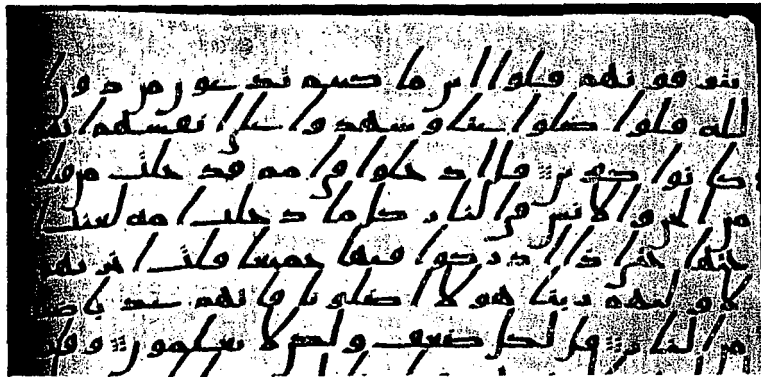 يتوفونهم قلوا اين ما كنتم تدعون من دون ا
لله قلوا ضلوا عنا وشهدوا على انفسهم انه
كانوا كفرين قل ادخلوا في امم قد خلت من
من الجن والانس في النار كلما دخلت امه لعنت
ختها حتى اذا ادركوا فيها جميعا قلت اخريهم
لاوليهم ربنا هولا اضلونا فاتهم عذبا ضعـ
من النار قل لكل ضعف ولكن لا تعلمون وقلت